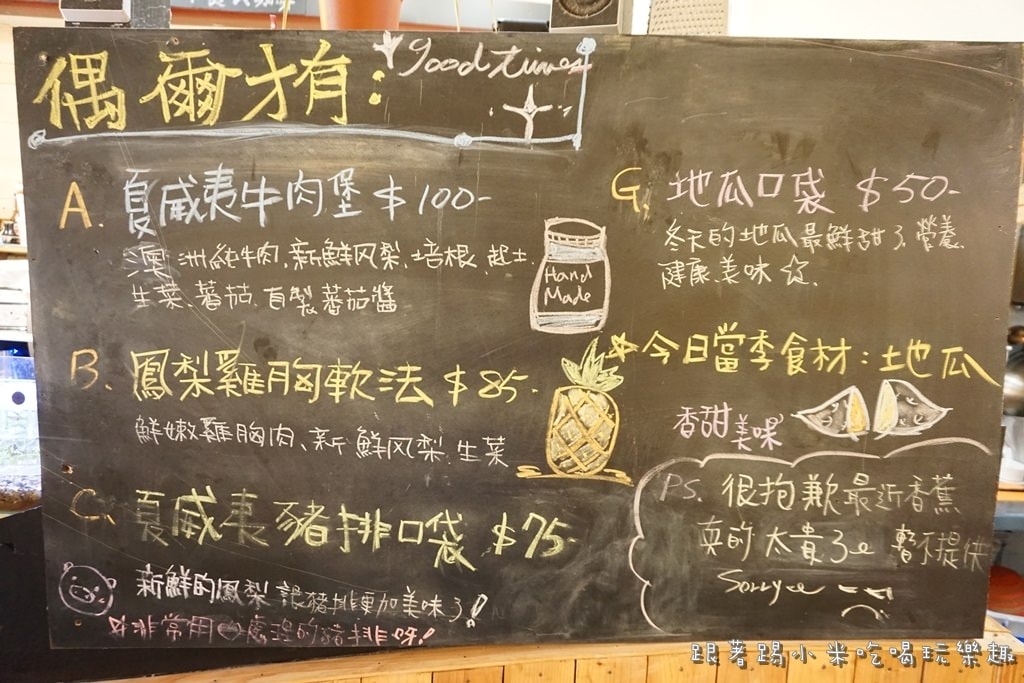 偶爾才有:
good times
A. 夏威夷牛肉堡 $100-
澳洲純牛肉、新鮮风梨、培根、起士、
生菜、蕃茄、自製蕃茄醬
Hand
Made
B. 鳳梨雞胸軟法 $85-
鮮嫩雞胸肉、新鮮风梨、生菜
C. 夏威夷豬排口袋 $75-
新鮮的鳳梨 讓豬排更加美味了!
非常用心處理的豬排呀!
G. 地瓜口袋 $50-
冬天的地瓜最鮮甜了,營養、
健康、美味☆
☆今日當季食材:地瓜
香甜美味
PS. 很抱歉最近香蕉
真的太貴了 暫不提供
Sorry
跟著踢小米吃喝玩樂趣